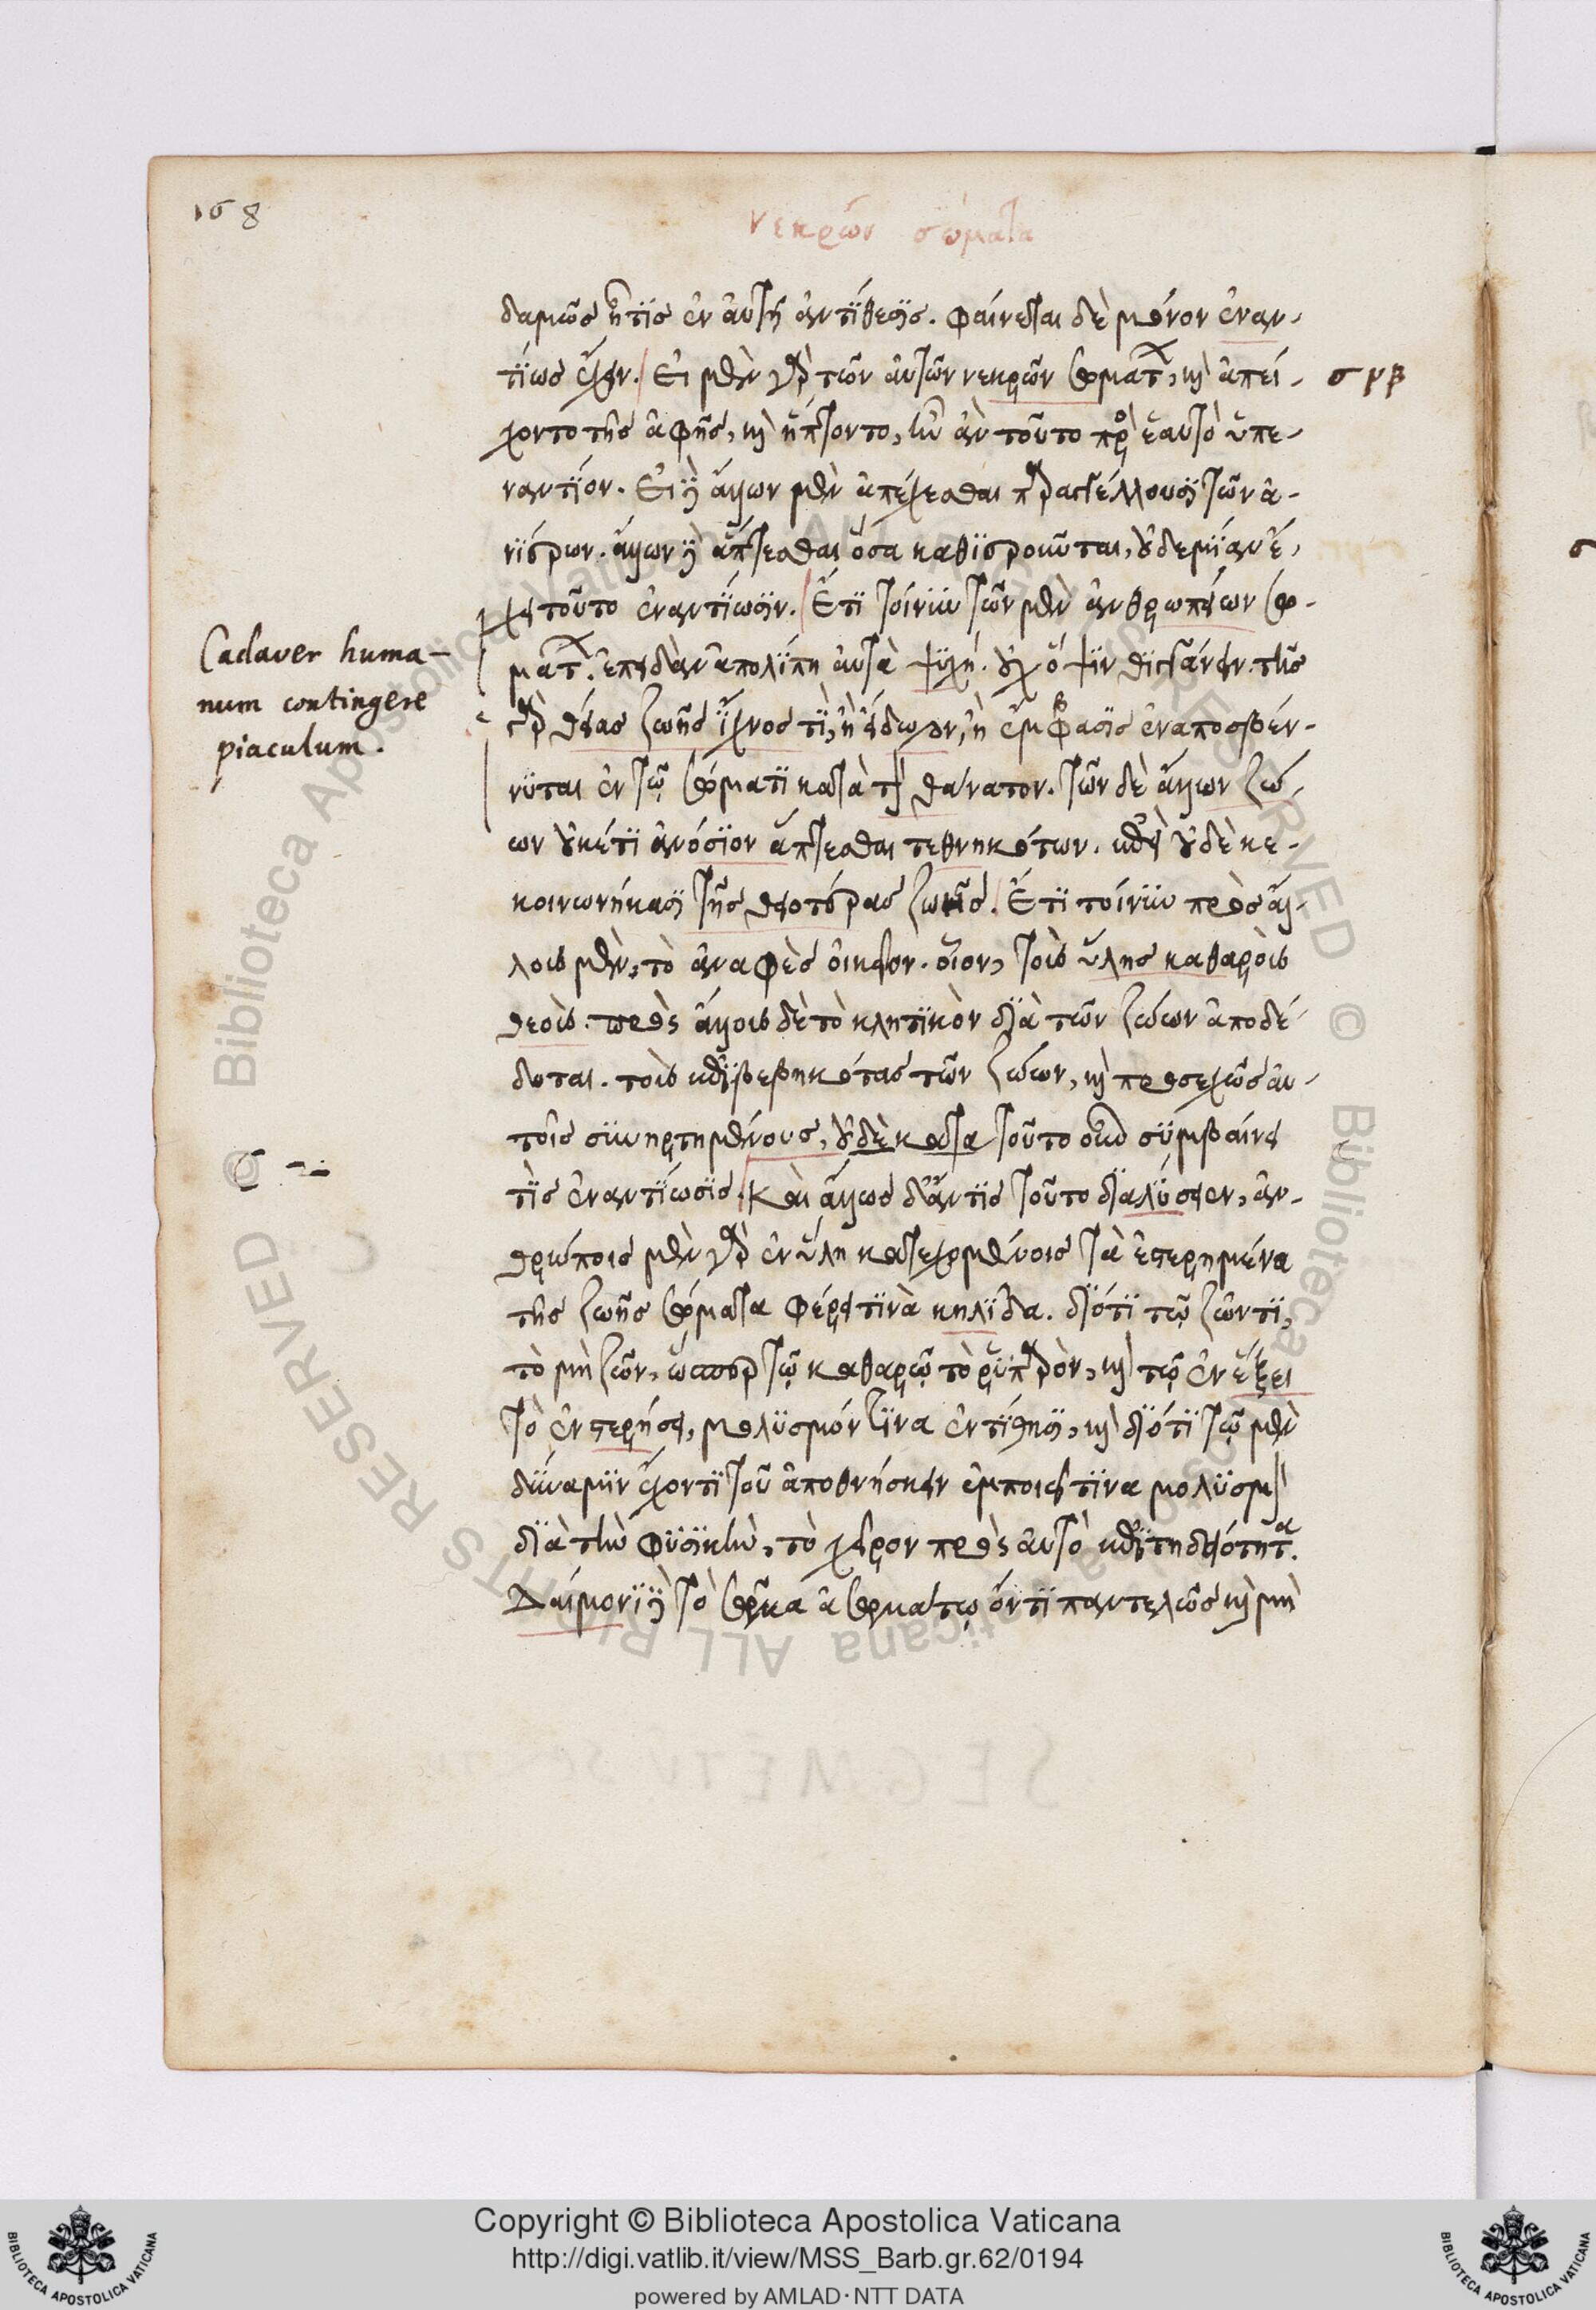 168
νεκρῶν σώματα
δαμῶς ἥτις ἐν αὐτῇ ἀντίθεσις. Φαίνεται δὲ μόνον ἐναν-
τίως ἔχειν. Εἰ μὲν γὰρ τῶν αὐτῶν νεκρῶν σωμάτων, καὶ ἀπεί-
χοντο τῆς ἀφῆς, καὶ ἥπτοντο, ἦν ἂν τοῦτο πρὸς ἑαυτὸ ὑπε-
ναντίον. Εἰ δὲ ἄλλων μὲν ἀπέχεσθαι παραγγέλλουσι τῶν ἀ-
νιέρων. ἄλλων δὲ ἅπτεσθαι ὅσα καθιεροῦται, οὐδεμίαν ἔ-
χει τοῦτο ἐναντίωσιν. Ἔτι τοίνυν τῶν μὲν ἀνθρωπείων σω-
μάτων. ἐπειδὰν ἀπολίπῃ αὐτὰ ψυχή. οὐχ ὅσιν θιγγάνειν. τῆς
γὰρ θείας ζωῆς ἴχνος τι, ἢ εἴδωλον, ἢ ἔμφασις ἐναποσβέν-
νυται ἐν τῷ σώματι κατὰ τὸν θάνατον. τῶν δὲ ἄλλων ζώ-
ων οὐκέτι ἀνόσιον ἅπτεσθαι τεθνηκότων. ἐπεὶ οὐδὲ κε-
κοινωνήκασι τῆς θειοτέρας ζωῆς. Ἔτι τοίνυν πρὸς ἄλ-
λοις μὲν, τὸ ἀναφὲς οἰκεῖον. οἷον, τοῖς ὕλης καθαροῖς
θεοῖς. πρὸς ἄλλοις δὲ τὸ κλητικὸν διὰ τῶν ζώων ἀποδέ-
δοται. τοῖς ἐπιβεβηκότας τῶν ζώων, καὶ προσεχῶς αὐ-
τοῖς συνηρτημένους, οὐδὲ κατὰ τοῦτο οὖν συμβαίνει
τὶς ἐναντίωσις. Καὶ ἄλλως δ' ἄν τις τοῦτο διαλύσειεν, ἀν-
θρώποις μὲν γὰρ ἐν ὕλῃ κατεχομένοις τὰ ἐστερημένα
τῆς ζωῆς σώματα φέρει τινὰ κηλίδα. διότι τῷ ζῶντι,
τὸ μὴ ζῶν, ὥσπερ τῷ καθαρῷ τὸ ῥυπαρὸν, καὶ τῷ ἐν ἕξει
τὸ ἐν στερήσει, μολυσμόν τινα ἐντίθησι, καὶ διότι τῷ μὲν
δύναμιν ἔχοντι τοῦ ἀποθνήσκειν ἐμποιεῖ τινα μολυσμὸν
διὰ τὴν φυσικὴν, τὸ χεῖρον πρὸς αὐτὸ ἐπιτηδειότητα.
Δαίμονι δὲ τὸ σῶμα ἀσωμάτῳ ὄντι παντελῶς καὶ μὴ
σνβ
Cadaver huma-
num contingere
piaculum.
Copyright © Biblioteca Apostolica Vaticana
http://digi.vatlib.it/view/MSS_Barb.gr.62/0194
powered by AMLAD·NTT DATA